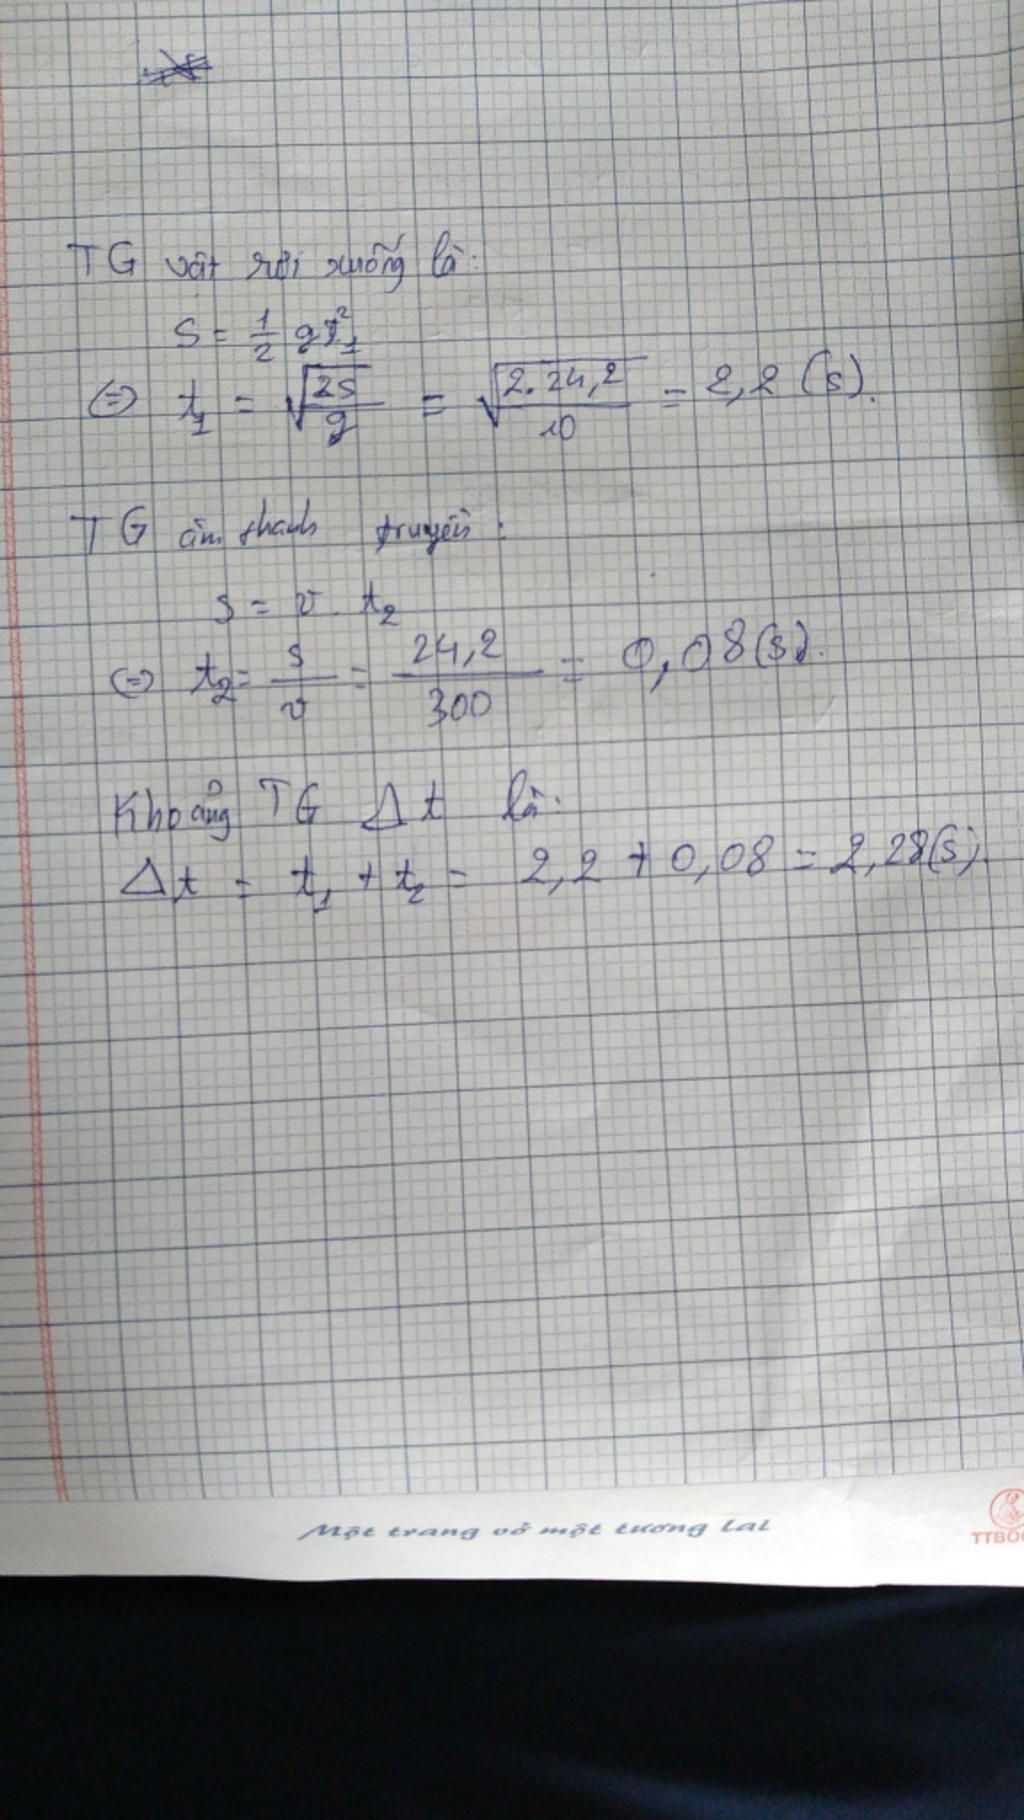 TG vật rơi xuống là:
S = 1/2 gt₁²
⇔ t₁ = √(2s/g) = √(2.24,2/10) = 2,2 (s).
TG âm thanh truyền:
s = v. t₂
⇔ t₂ = s/v = 24,2/300 = 0,08(s).
Khoảng TG Δt là:
Δt = t₁ + t₂ = 2,2 + 0,08 = 2,28(s).
Một trang vở một tương lai